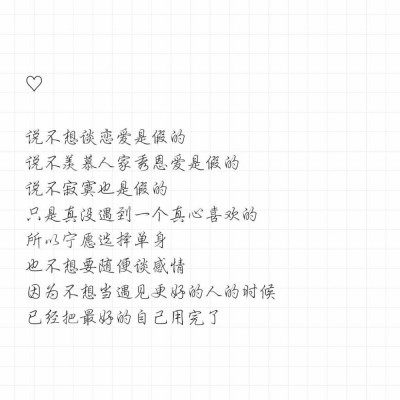 ♡
说不想谈恋爱是假的
说不羡慕人家秀恩爱是假的
说不寂寞也是假的
只是真没遇到一个真心喜欢的
所以宁愿选择单身
也不想要随便谈感情
因为不想当遇见更好的人的时候
已经把最好的自己用完了